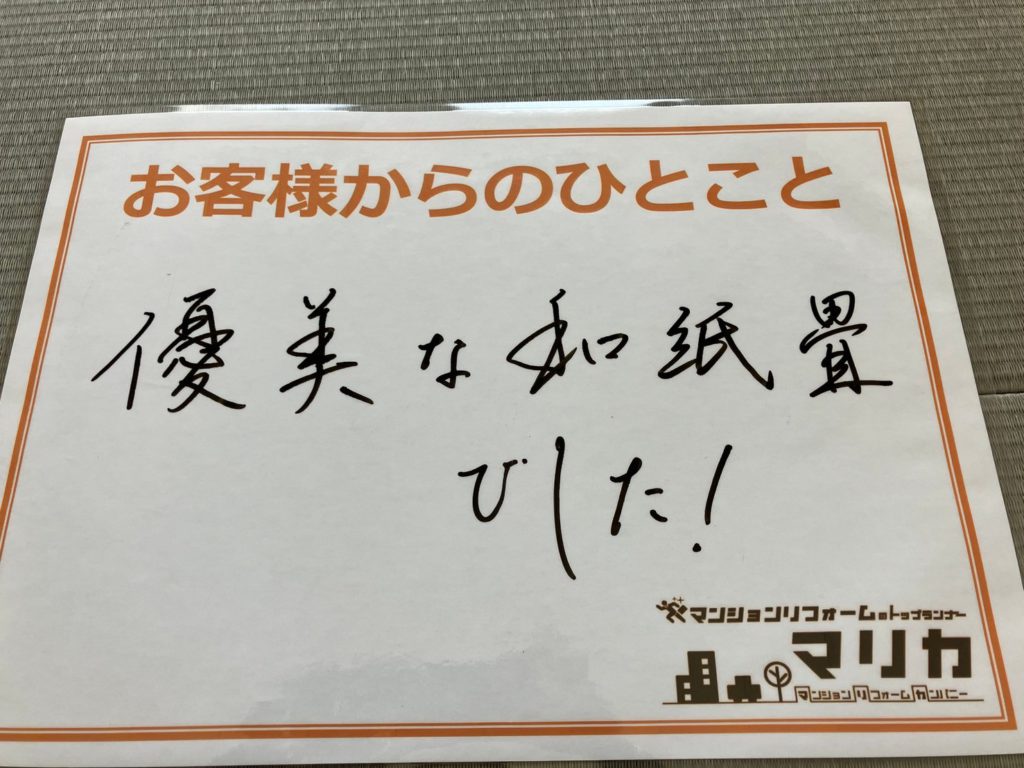 お客様からのひとこと
優美な和紙畳
でした!
マンションリフォームのトップランナー
マリカ
マンションリフォームカンパニー